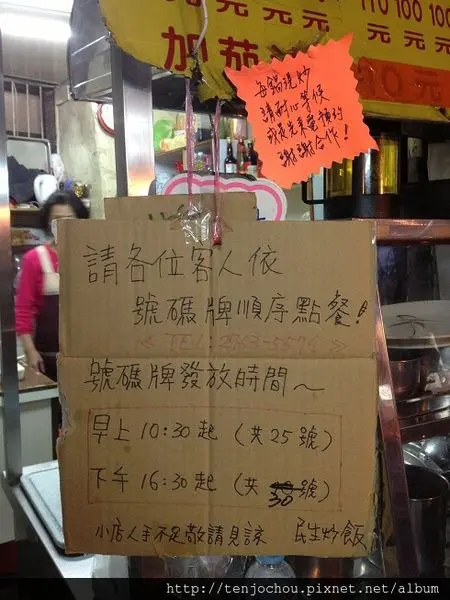 110 100 100
元 元 元 元 元
加茄
元
每鍋現炒
請耐心等候
或是先來電預約
謝謝合作!
請各位客人依
號碼牌順序點餐!
號碼牌發放時間~
早上 10:30 起 (共 25 號)
下午 16:30 起 (共 30 號)
小店人手不足敬請見諒 民生炒飯
http://tenjochou.pixnet.net/album